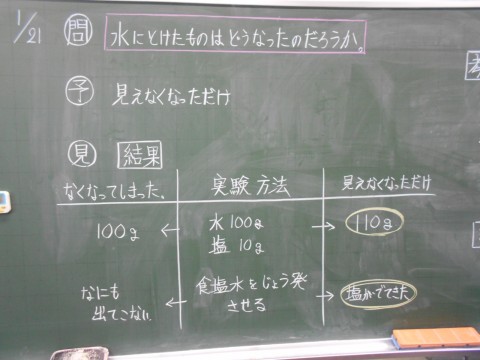 1/21
問 水にとけたものはどうなったのだろうか。
予 見えなくなっただけ
見 結果
なくなってしまった。 実験方法 見えなくなっただけ
100g ← 水100g → 110g
塩10g
なにも 食塩水をじょう発
出てこない ← させる → 塩がでてきた